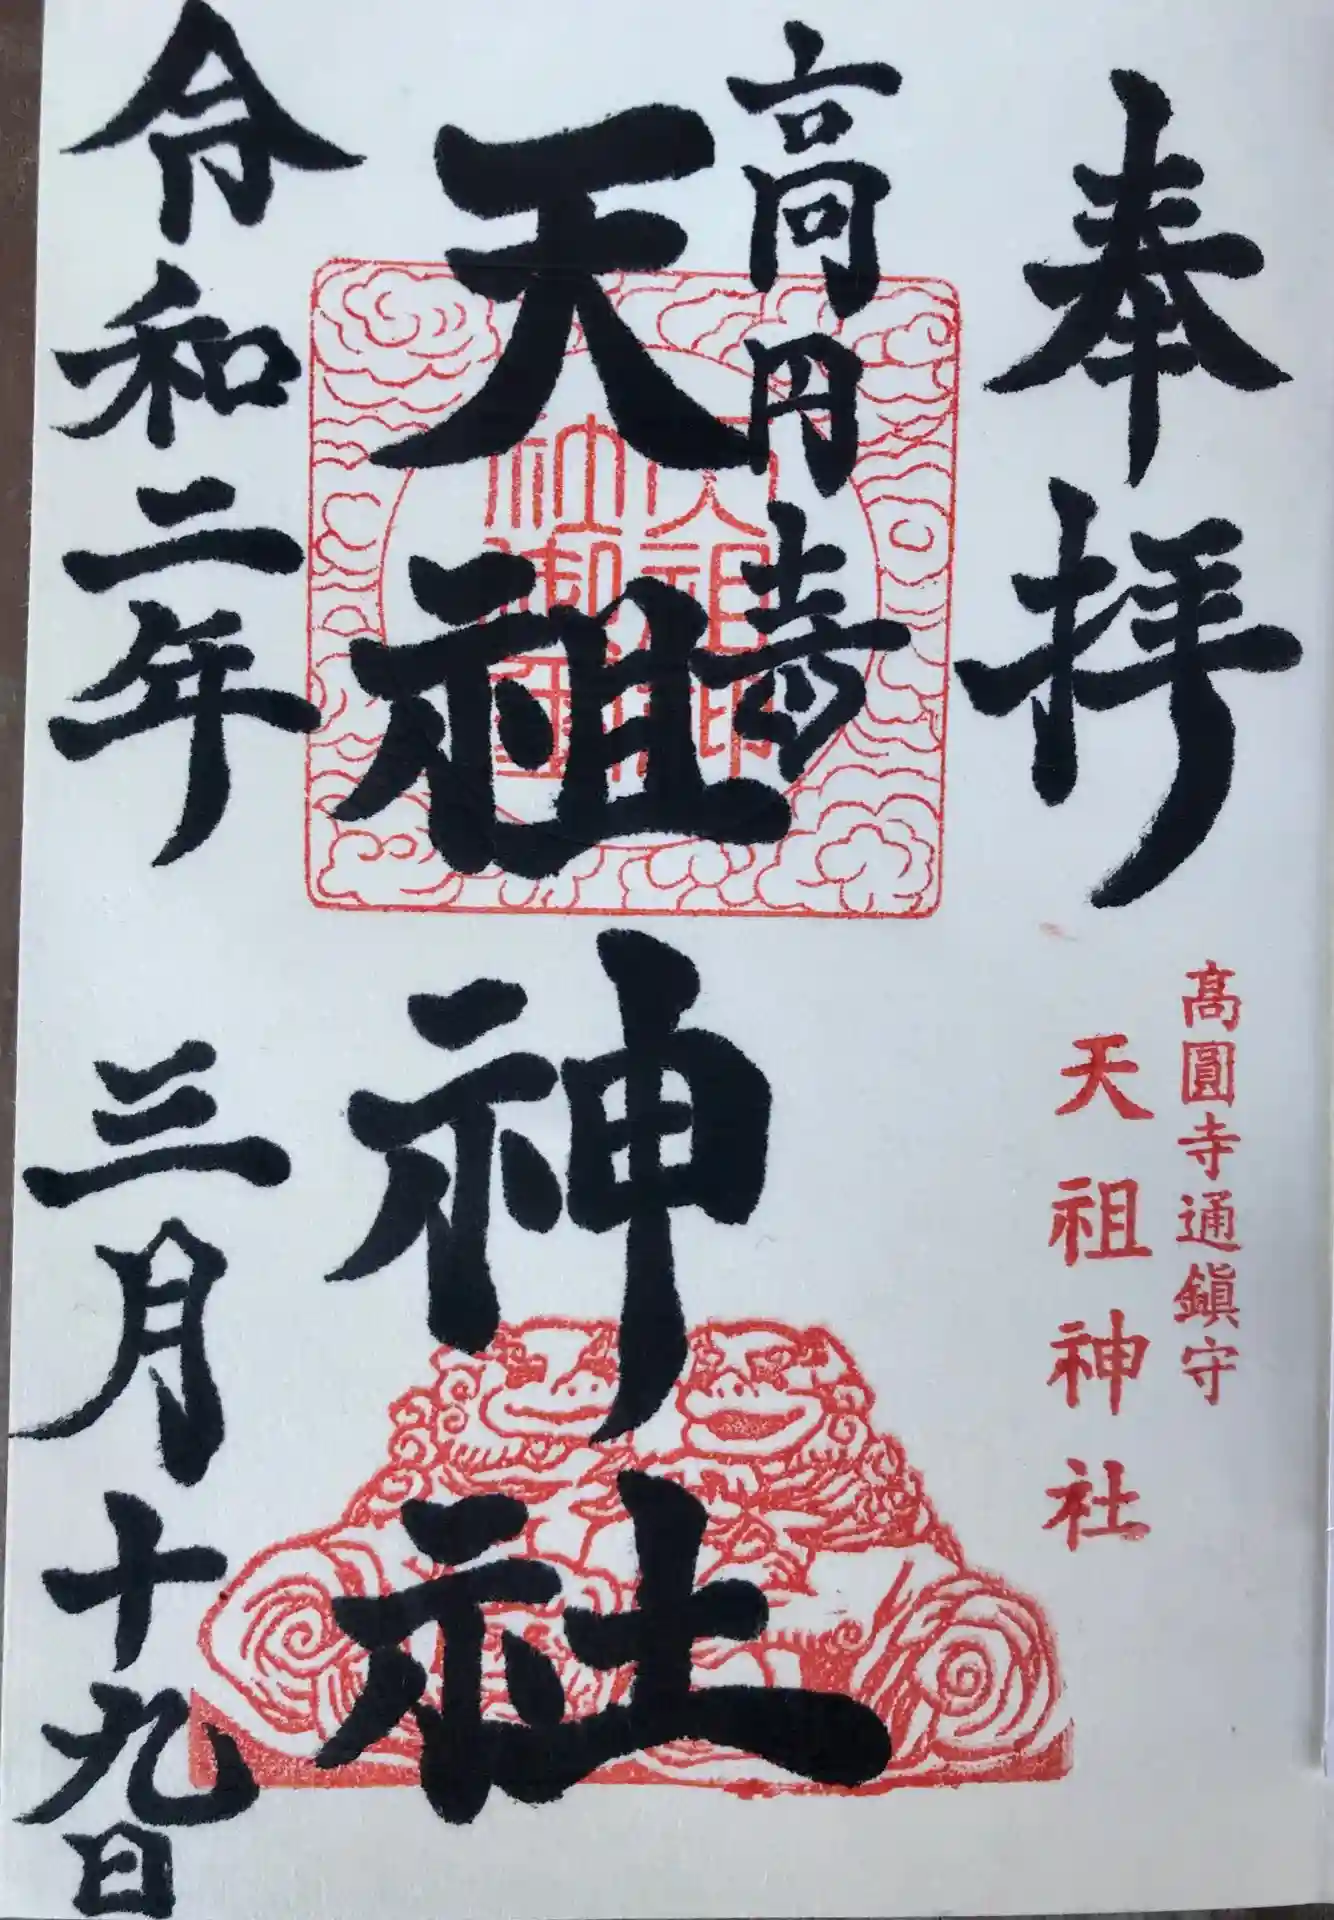 奉拝
高圓寺通鎭守
天祖神社
高円寺
天祖神社
天祖神
社御璽
令和二年
三月十九日